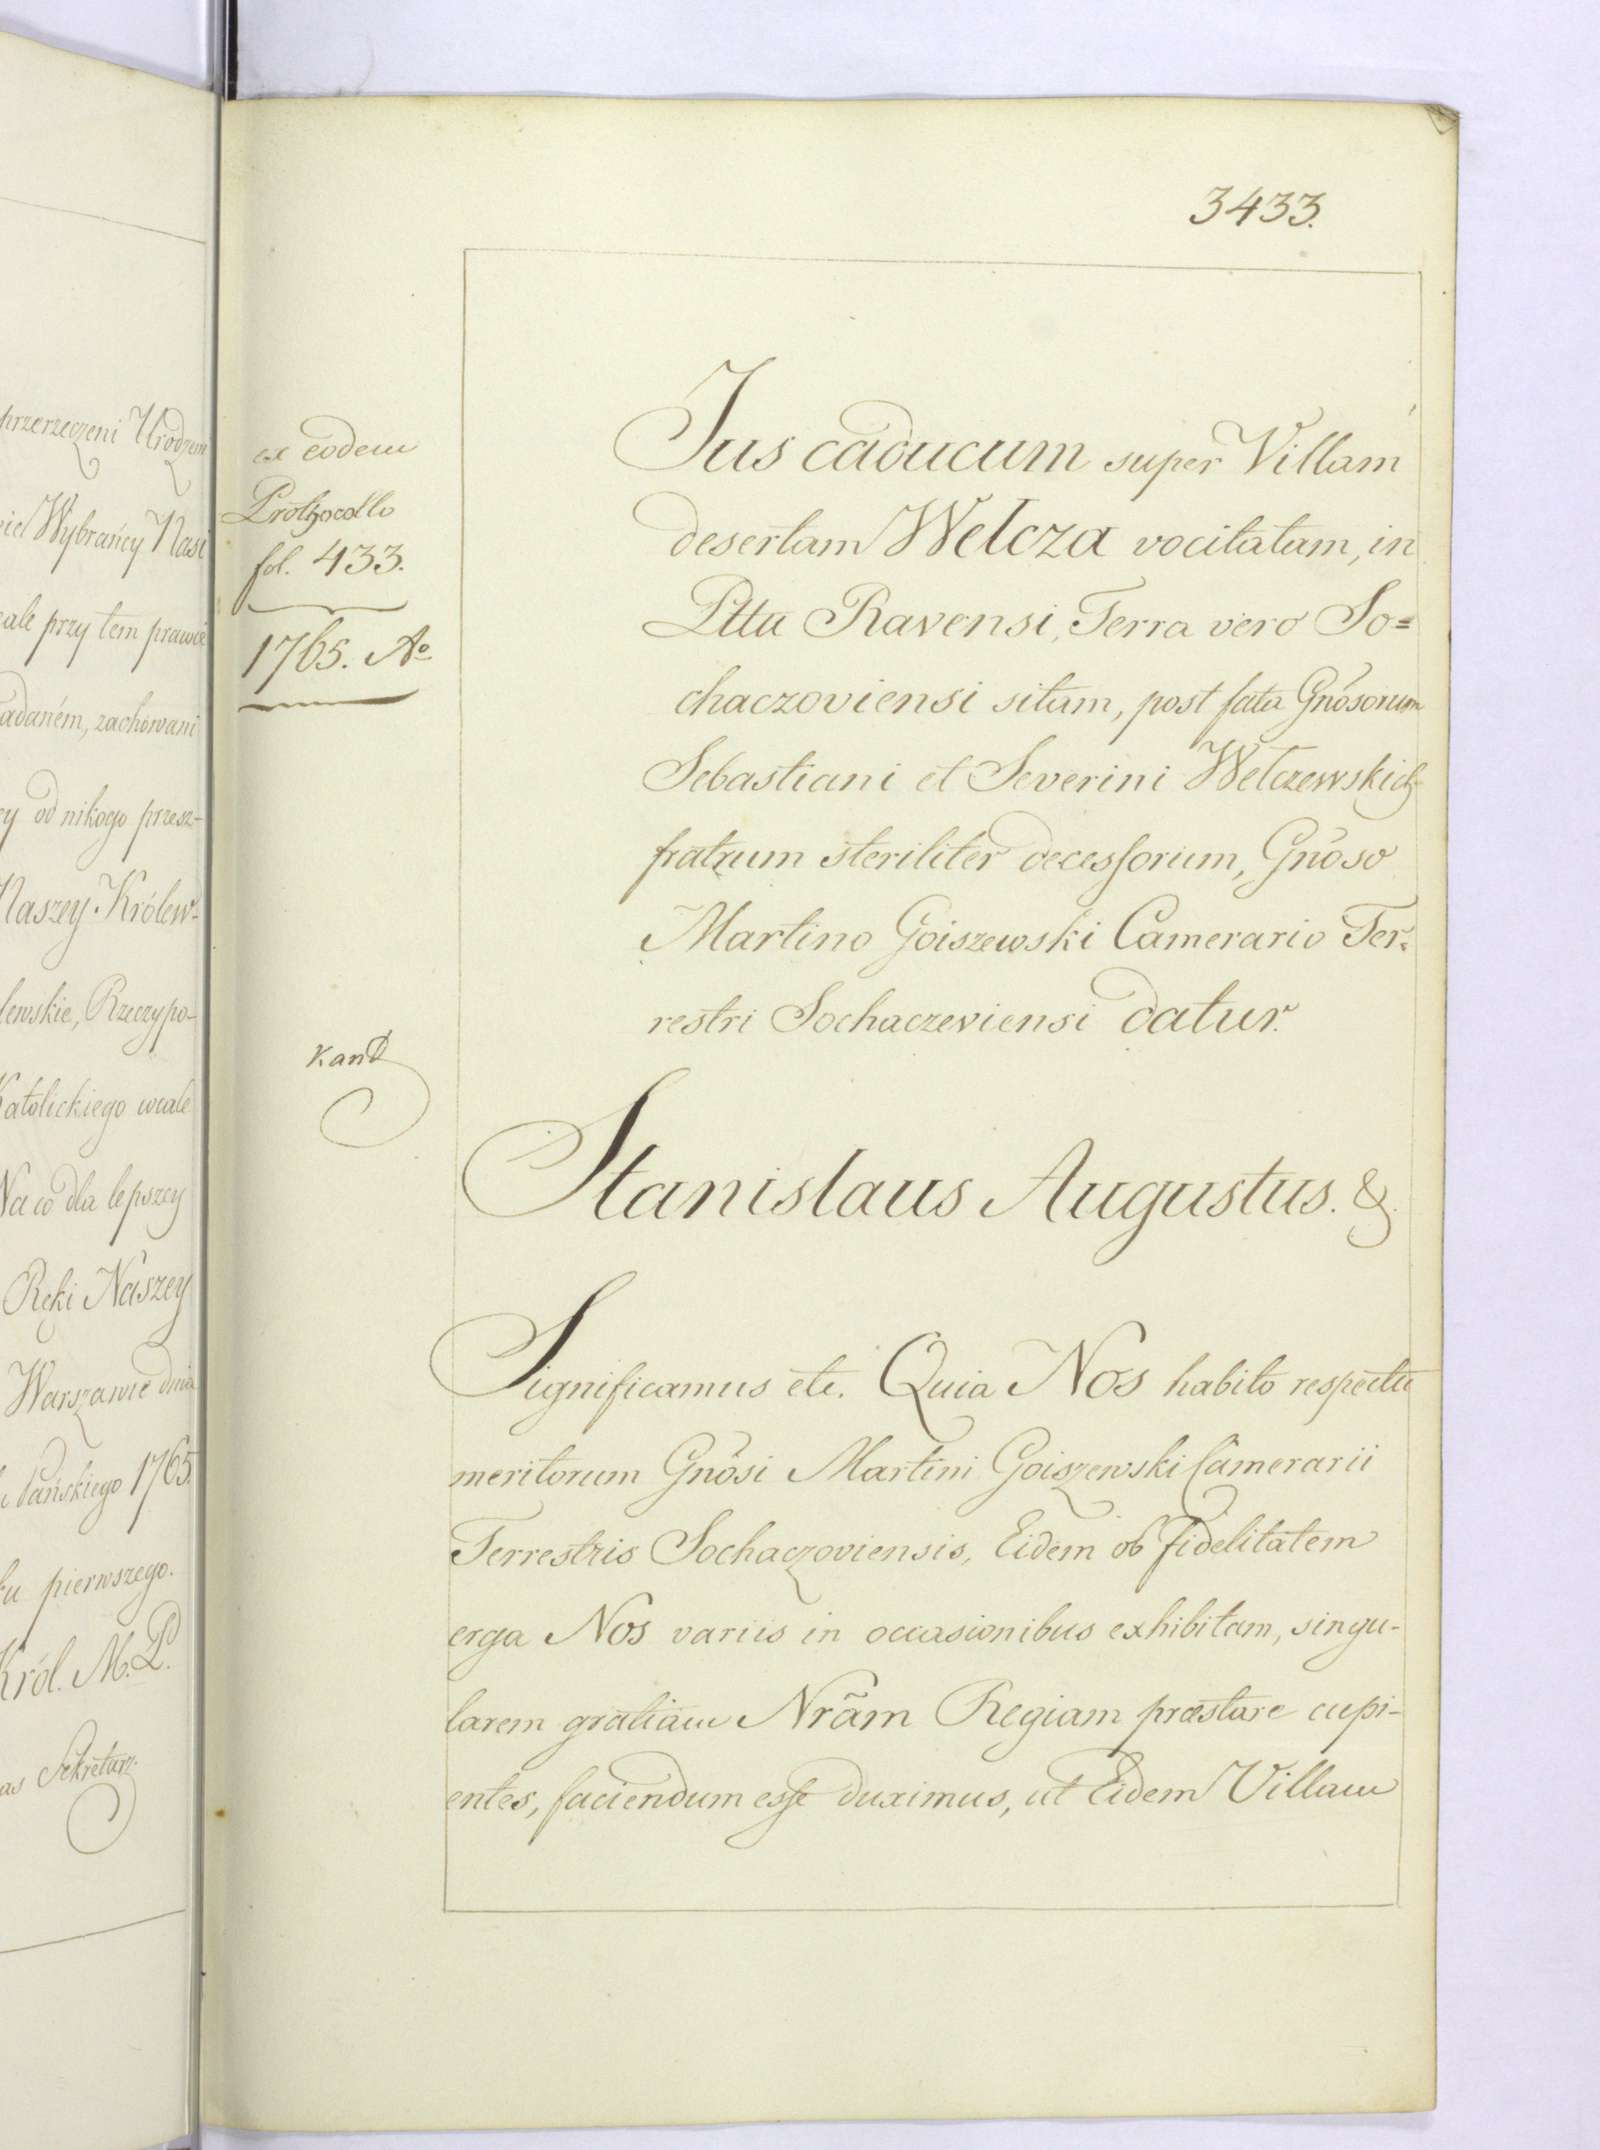 przerzeczeni Urodzeni
Wybrańcy Nasi
cale przy tem prawie
zachowani
od nikogo przesz-
Naszey Królew-
Rzeczypo-
Katolickiego wcale
Na co dla lepszey
Ręki Naszey
Warszawie dnia
1765.
pierwszego.
Król. M. P.
Sekretarz.
3433.
ex eodem
Prothocollo
fol. 433.
1765. Ao
Jus caducum super Villam
desertam Welcza vocitatam, in
Pttu Ravensi, Terra vero So=
chaczoviensi sitam, post fata Gnosorum
Sebastiani et Severini Welczewskich
fratrum steriliter decessorum, Gnoso
Martino Goiszewski Camerario Ter=
restri Sochaczeviensi datur.
Kand
Stanislaus Augustus. &.
Significamus etc. Quia Nos habito respectu
meritorum Gnosi Martini Goiszewski Camerarii
Terrestris Sochaczoviensis, Eidem ob fidelitatem
erga Nos variis in occasionibus exhibitam, singu-
larem gratiam Nrãm Regiam præstare cupi-
entes, faciendum esse duximus, ut Eidem Villam